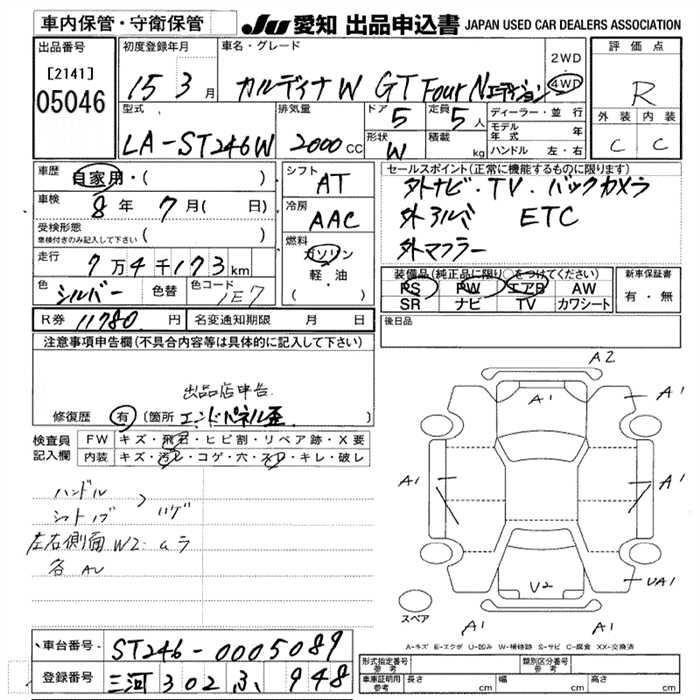 車内保管・守衛保管
JU 愛知 出品申込書 JAPAN USED CAR DEALERS ASSOCIATION
出品番号
[2141]
05046
初度登録年月
15 3月
車名・グレード
カルディナW GT Four Nエディション
2WD
4WD
評価点
R
外装 内装
C C
型式
LA-ST246W
排気量
2000 CC
ドア 5
定員 5人
形状 W
積載 kg
ディーラー・並行
モデル年式 年
ハンドル 左・右
車歴
自家用・( )
車検
8年 7月( 日)
受検形態
車検付きのみ記入して下さい ( )
走行
7万4千173km
色
シルバー
色替
色コード
1E7
シフト
AT
冷房
AAC
燃料
ガソリン
軽・油
( )
セールスポイント(正常に機能するものに限ります)
外ナビ・TV・バックカメラ
外アルミ ETC
外マフラー
装備品(純正品に限り○をつけてください)
PS PW エアB AW
SR ナビ TV カワシート
新車保証書
有・無
R券 11780 円
名変通知期限 月 日
後日品
注意事項申告欄(不具合内容等は具体的に記入して下さい)
出品店申告
修復歴 有 (箇所 エンドパネル歪
検査員記入欄
FW キズ・飛石・ヒビ割・リペア跡・X要
内装 キズ・汚レ・コゲ・穴・スレ・キレ・破レ
ハンドル
シフトノブ
ハゲ
左右側面W2.ムラ
各AU
A2
A1
A1
A1
A1
V2
UA1
A1
A1
スペア
A-キズ E-エクボ U-凹み W-補修跡 S-サビ C-腐食 XX-交換済
車台番号 ST246-0005089
登録番号 三河 302 ふ 948
形式指定番号
参考
類別区分番号
参考
車庫証明用
参考
長さ cm 幅 cm 高さ cm